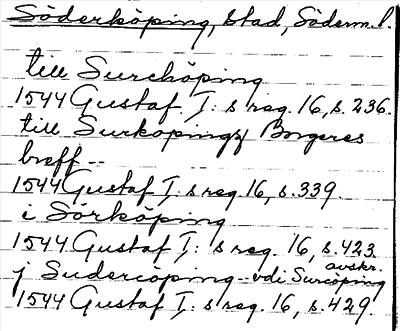 Söderköping, stad, Söderm. l.
till Surchöping
1544 Gustaf I: s reg. 16, s. 236.
till Surköpings Borgeres
breff --
1544 Gustaf I: s reg. 16, s. 339.
i Sörköping
1544 Gustaf I: s reg. 16, s. 423.
avskr.
j Sudercöping - vdi Surcöping
1544 Gustaf I: s reg. 16, s. 429.